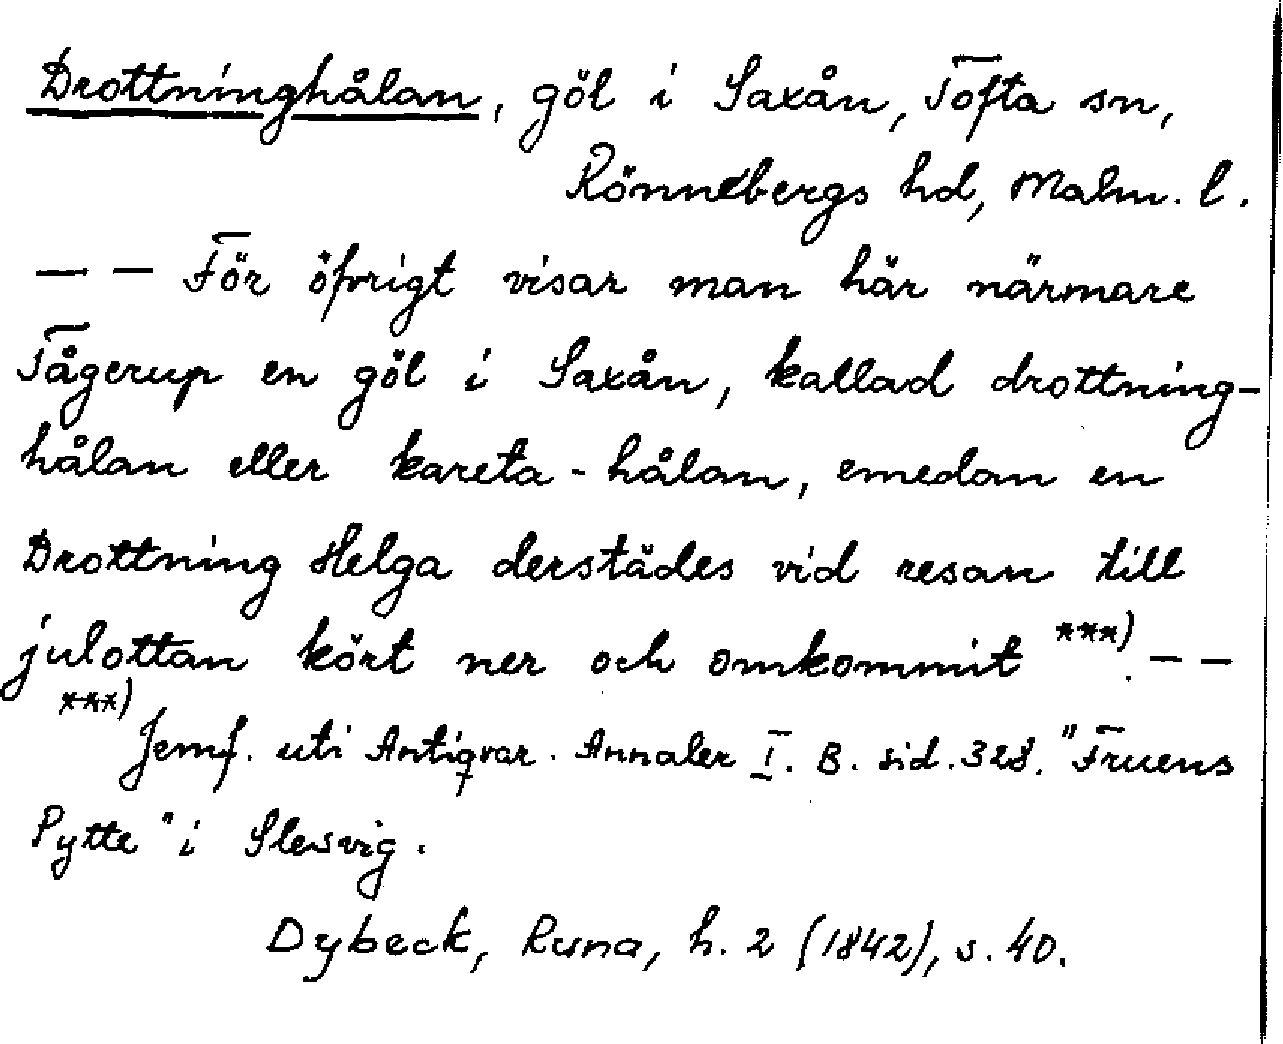 Drottninghålan, göl i Saxån, Tofta sn,
Rönnebergs hd, Malm. l.
— — För öfvrigt visar man här närmare
Tågerup en göl i Saxån, kallad drottning-
hålan eller kareta-hålan, emedan en
Drottning Helga derstädes vid resan till
julottan kört ner och omkommit ***). — —
***) Jemf. uti Antiqvar. Annaler I. B. sid. 328. "Fruens
Pytte" i Slesvig.
Dybeck, Runa, h. 2 (1842), s. 40.